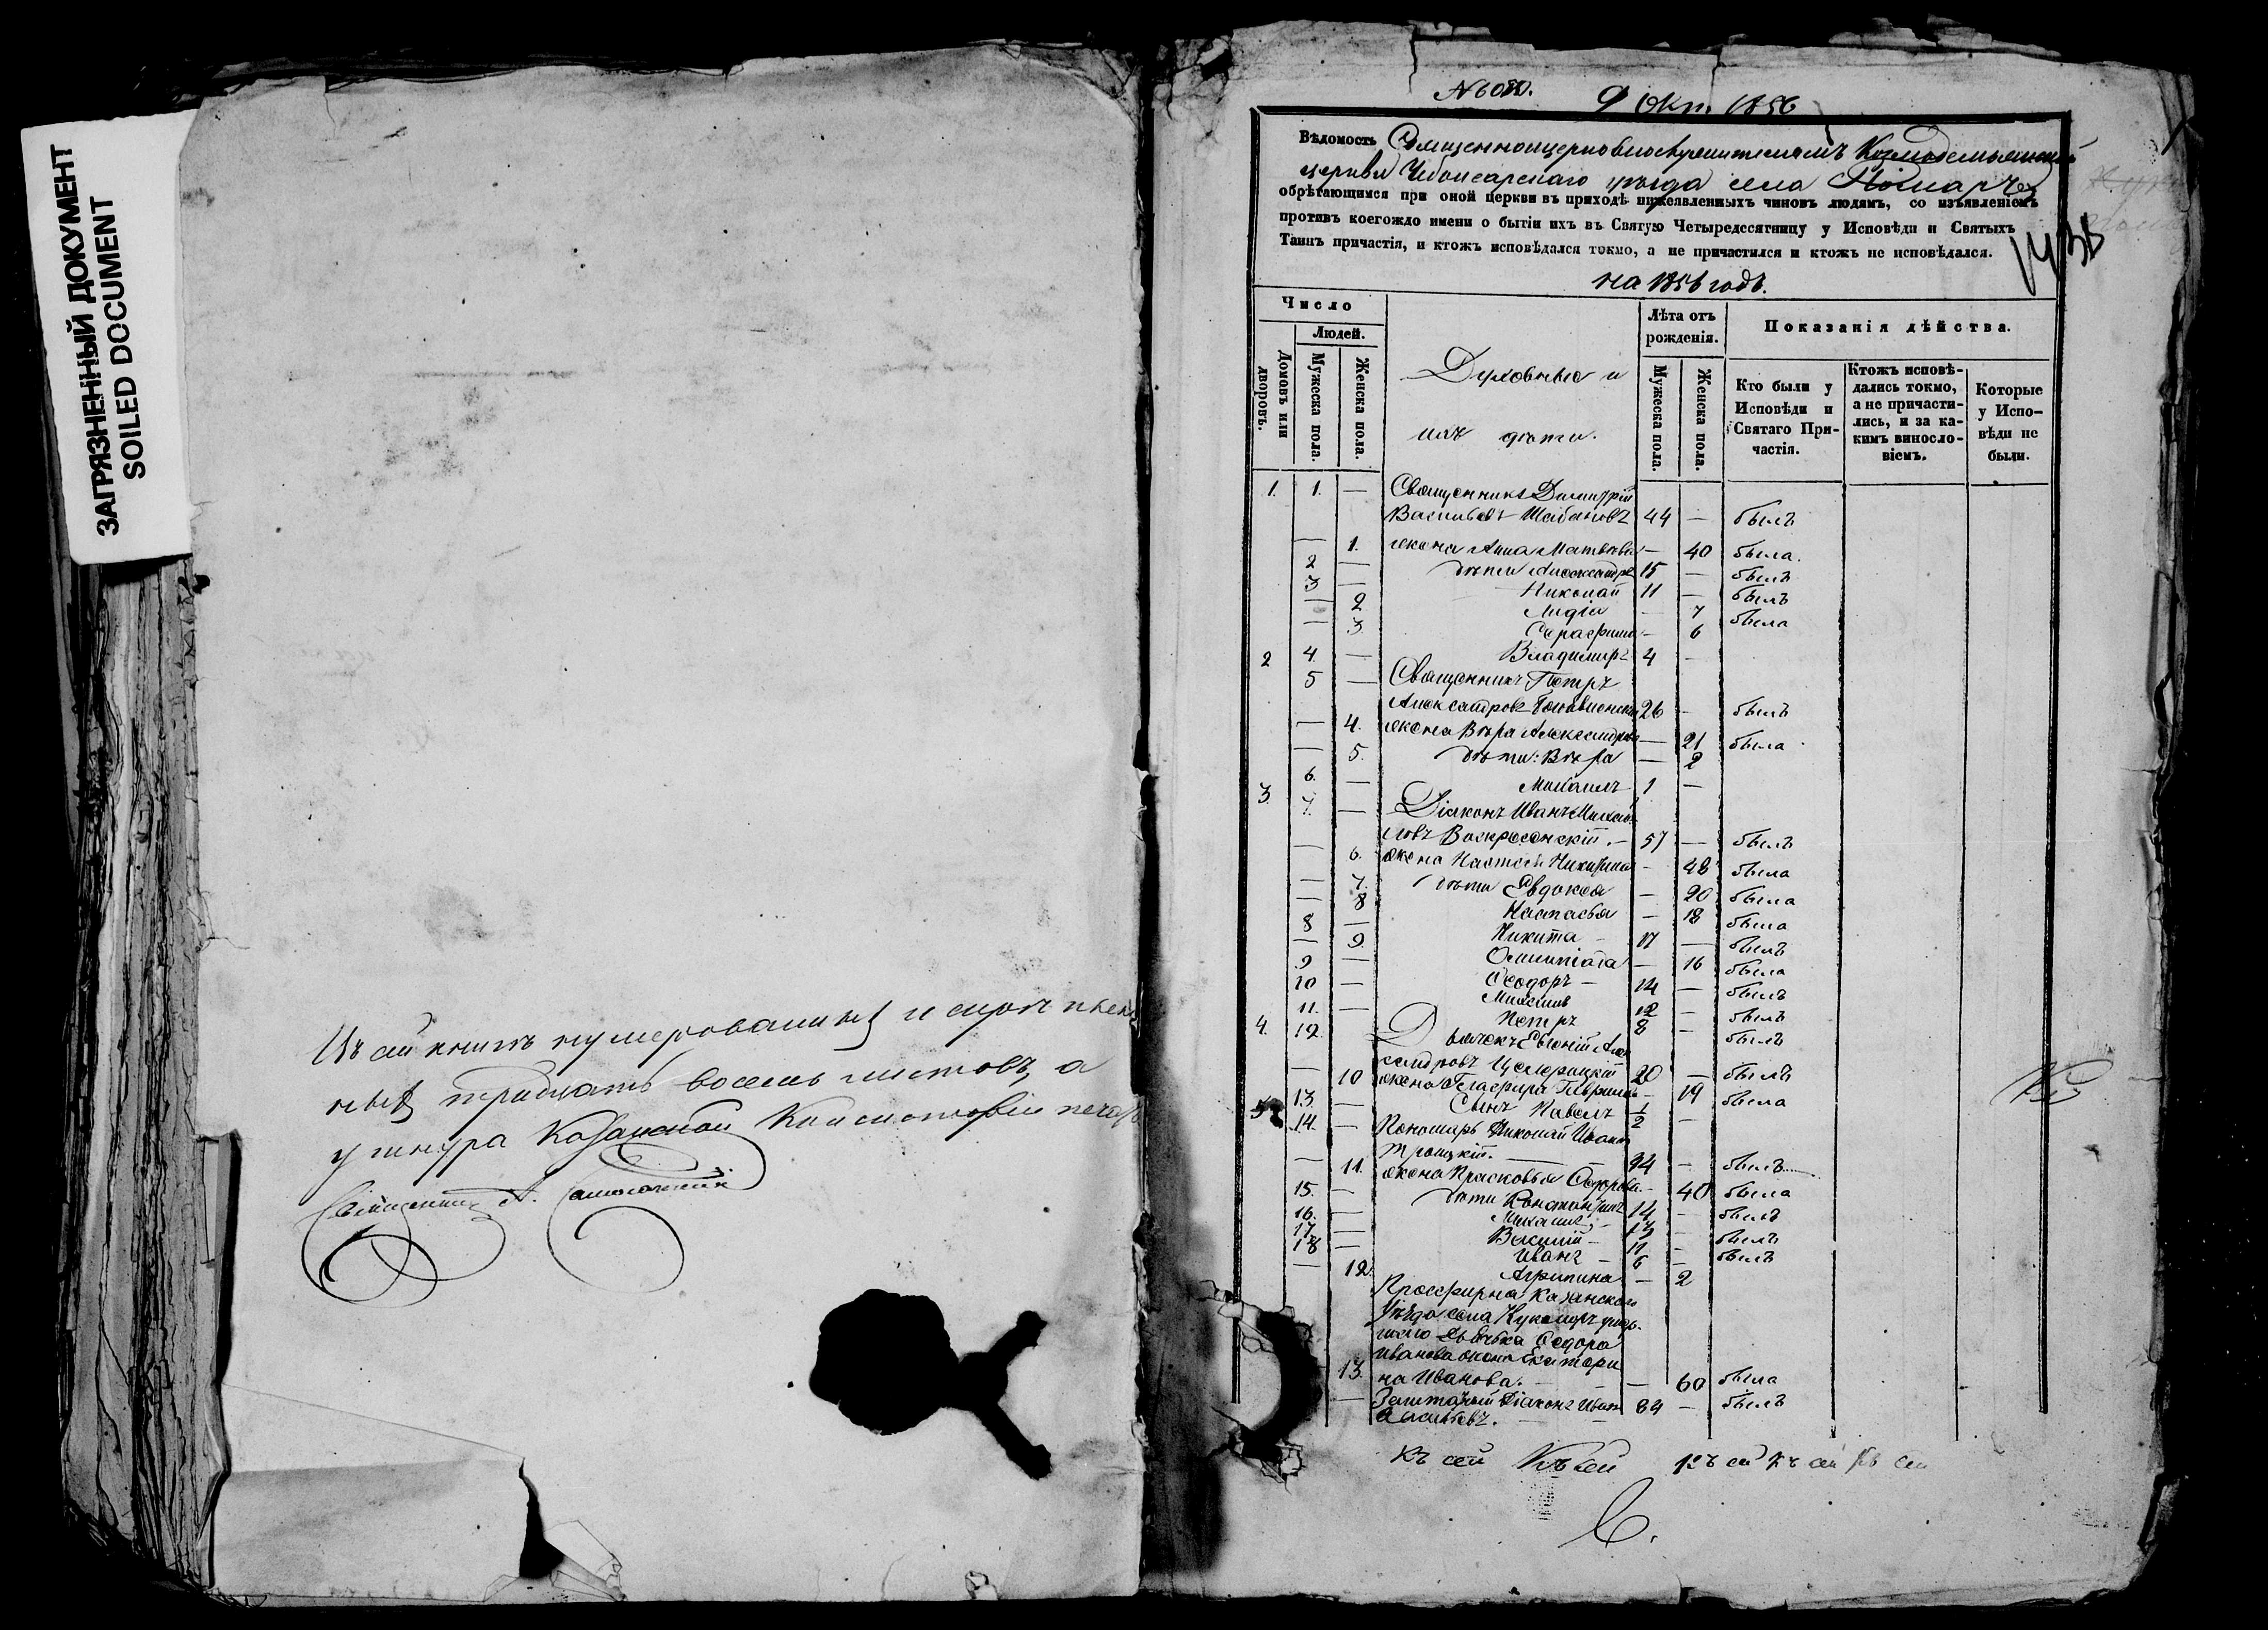 ЗАГРЯЗНЕННЫЙ ДОКУМЕНТ
SOILED DOCUMENT
тридцать восемь листовъ, а
у шнура Казанской Консисторіи
Священникъ А.
9 Окт. 1856
Вѣдомость Священноцерковнослужителямъ Козмодемьянской
церкви Чебоксарскаго уѣзда села
обрѣтающимся при оной церкви въ приходѣ нижеявленныхъ чиновъ людямъ, со изъявленіемъ
противъ коегождо имени о бытіи ихъ въ Святую Четыредесятницу у Исповѣди и Святыхъ
Таинъ причастія, и ктожъ исповѣдался токмо, а не причастился и ктожъ не исповѣдался.
на 1856 годъ.
Число
Людей.
Домовъ или дворовъ.
Мужеска пола.
Женска пола.
Духовные и
ихъ дѣти.
Лѣта отъ рожденія.
Мужеска пола.
Женска пола.
Показанія дѣйства.
Кто были у Исповѣди и Святаго Причастія.
Ктожъ исповѣ-
дались токмо,
а не причасти-
лись, и за ка-
кимъ винословіемъ.
Которые у Испо-
вѣди не были.
1. 1. — Священникъ Димитрій
Васильевъ Шабановъ 44 — былъ
— 1. жена Анна Матвѣева — 40 была.
2 — дѣти Александръ 15 — былъ
3 — Николай 11 — былъ
— 2 Лидія — 7 была
— 3 Серафима — 6
4. — Владимиръ 4 —
2 5 — Священникъ Петръ
Александровъ 26 — былъ
— 4. жена Вѣра Александрова — 21 была
— 5. дѣти: Вѣра — 2
6. — Михаилъ 1 —
3 7. — Діаконъ Иванъ Михай-
ловъ Воскресенскій. 57 — былъ
— 6. жена Настасья Никитина — 48 была
— 7. дѣти Евдокія — 20 была
— 8 Настасья — 18 была
8 — Никита 17 — былъ
— 9. Олимпіада — 16 была
9 — Ѳеодоръ 14 — былъ
10 — Михаилъ 12 — былъ
11. — Петръ 8 — былъ
4. 12. Дьячекъ Евгеній Алек
сандровъ 20 — былъ
— 10 жена Глафира Гаврилова — 19 была
13. — Сынъ Павелъ 1/2 —
5 14. — Пономарь Николай Ивановъ
Троицкій. 44 — былъ
— 11. жена Прасковья Ѳедорова — 40 была
15. — дѣти Константинъ 14 — былъ
16. — Михаилъ 13 — былъ
17 — Василій 11 — былъ
18 — Иванъ 6 —
— 12. Агрипина — 2
Просфирня Казанскаго
Уѣзда села Кукморъ
Дьячка Ѳедора
Иванова жена Екатери
13. на Иванова. — 60 была
— Заштатный Діаконъ Иванъ 84 — былъ
Васильевъ.
Къ сей Къ сей Къ сей Къ сей Къ сей